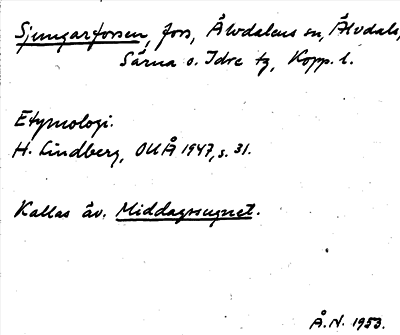 Sjungarforsen, fors, Älvdalens sn, Älvdals,
Särna o. Idre tg, Kopp. l.
Etymologi.
H. Lindberg, OUÅ 1947, s. 31.
Kallas äv. Middagssugnet.
Å.N. 1953.